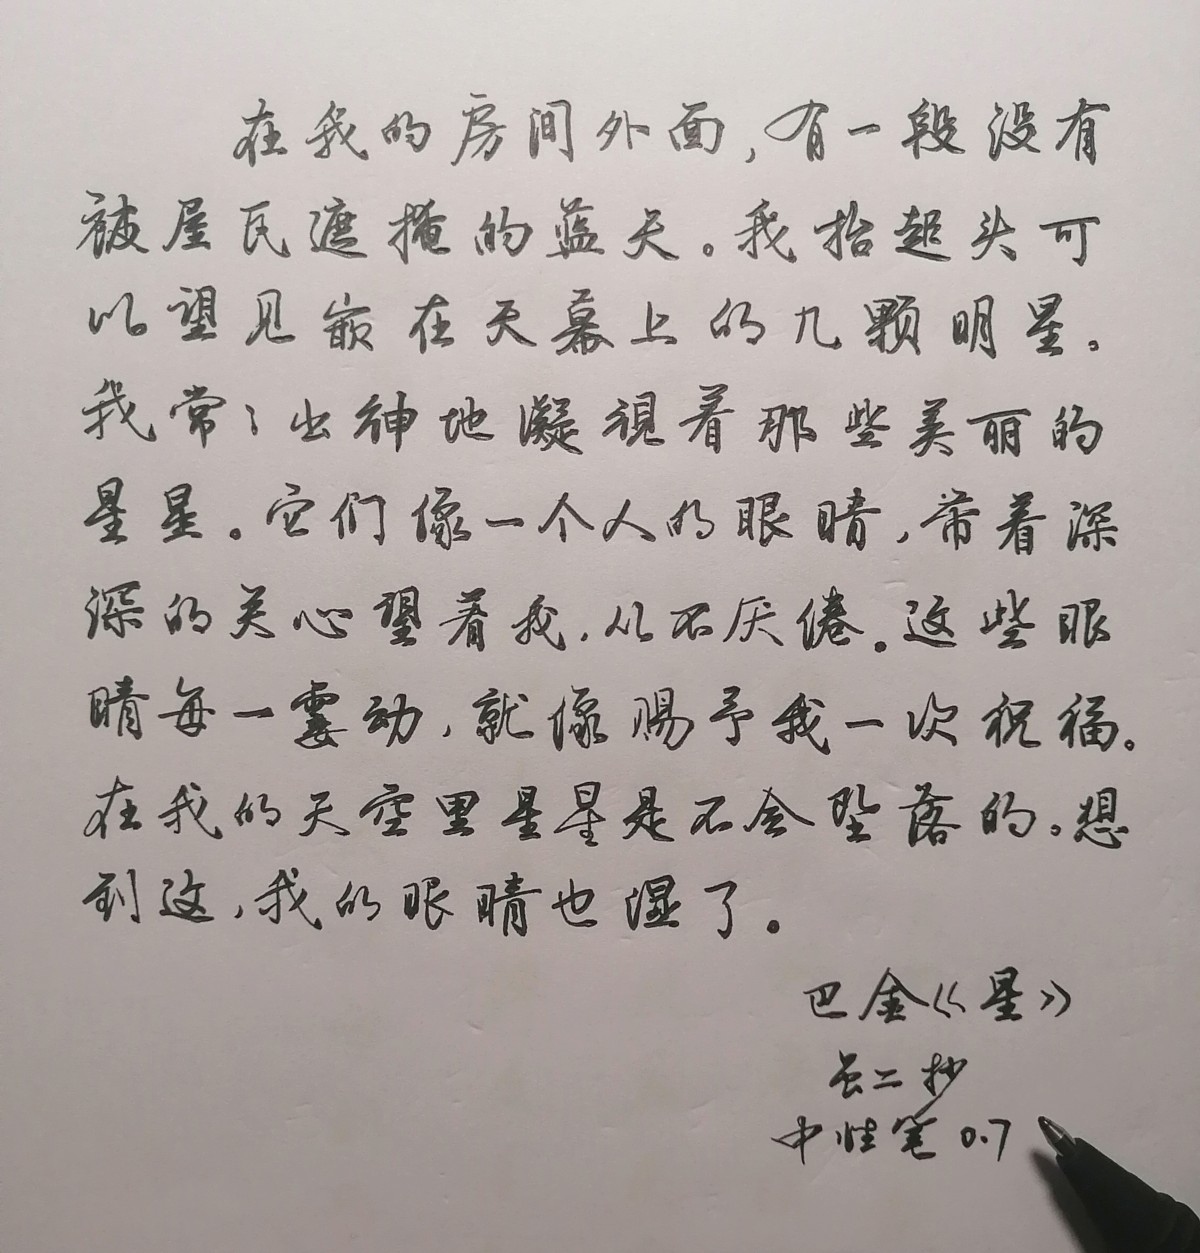 在我的房间外面,有一段没有
被屋瓦遮掩的蓝天。我抬起头可
以望见嵌在天幕上的几颗明星。
我常々出神地凝视着那些美丽的
星星。它们像一个人的眼睛,带着深
深的关心望着我,从不厌倦。这些眼
睛每一霎动,就像赐予我一次祝福。
在我的天空里星星是不会坠落的。想
到这,我的眼睛也湿了。
巴金《星》
二抄
中性笔0.7